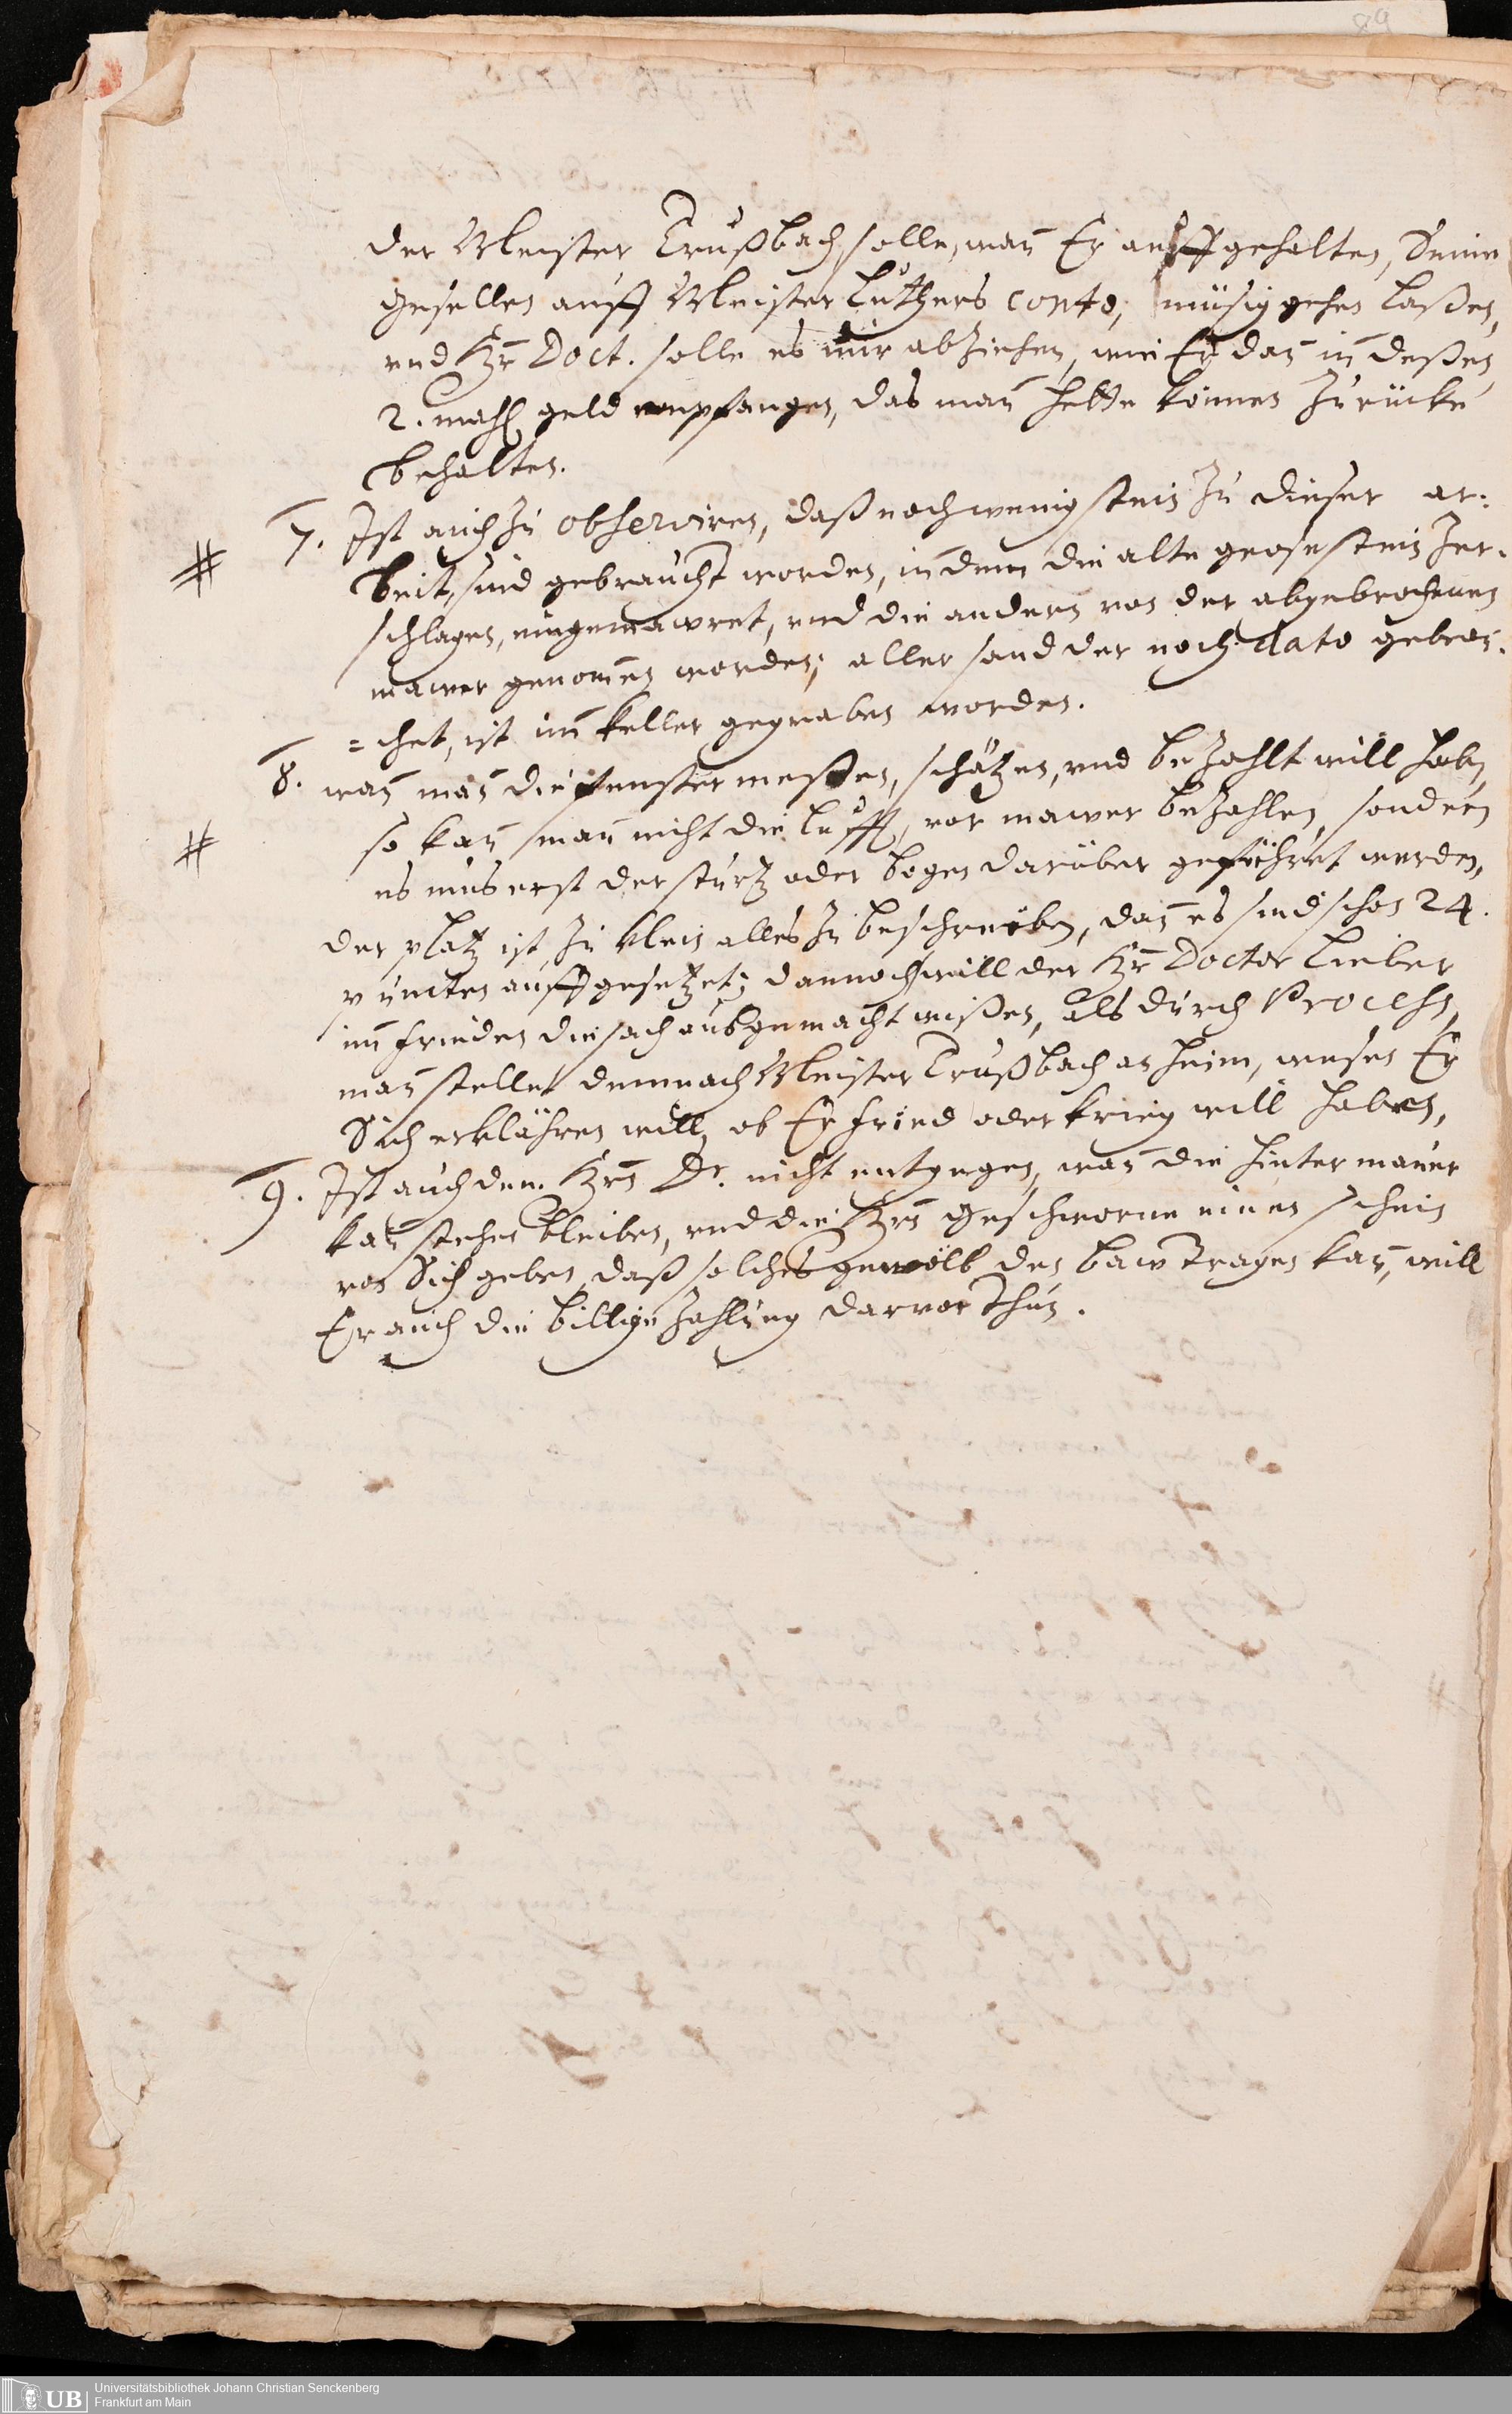 der Meister Traußbach, solle, wan̄ Er auffgehalten, Seine
gesellen auff Meister Luthers conto, müsig gehen laßen,
vnd Hr̄ Doct. solle es mir abziehen, wie Er dan̄ in deßen
2. mahl geld empfangen, das man̄ hette können zurücke
behalten.
7. Ist auch zu observiren, daß noch wenig stein zu dieser ar:
#
beit, sind gebraucht worden, in dem die alte grose stein zer:
schlagen, eingemawret, vnd die andern von der abgebrochenen
mawer genom̄en worden; aller sand der noch dato gebrau:
=chet, ist im̄ keller gegraben worden.
8. wan̄ man̄ die fenster meßen, schätzen, vnd bezahlt will haben,
#
so kan̄ man̄ nicht die lufft, vor mawer bezahlen, sondern
es mus erst der sturtz oder bogen darüber geführet werden,
der platz ist zu klein alles zu beschreiben, dan̄ es sind schon 24.
puncten auffgesetzet; dannoch will der Hr̄ Doctor lieber
im̄ frieden die sach ausgemacht wißen, als durch Process,
man̄ stellet demnach Meister Traußbach anheim, wesen Er
Sich erklähren will, ob Er fried oder krieg will haben,
9. Ist auch dem Hrn̄ Dr. nicht entgegen, wan̄ die hinter mauer
kan̄ stehen bleiben, vnd die Hrn̄ Geschworne einen schein
von Sich geben, daß solches gewölb den baw tragen kan̄, will
Er auch die billige zahlung darvor thun.
UB
Universitätsbibliothek Johann Christian Senckenberg
Frankfurt am Main